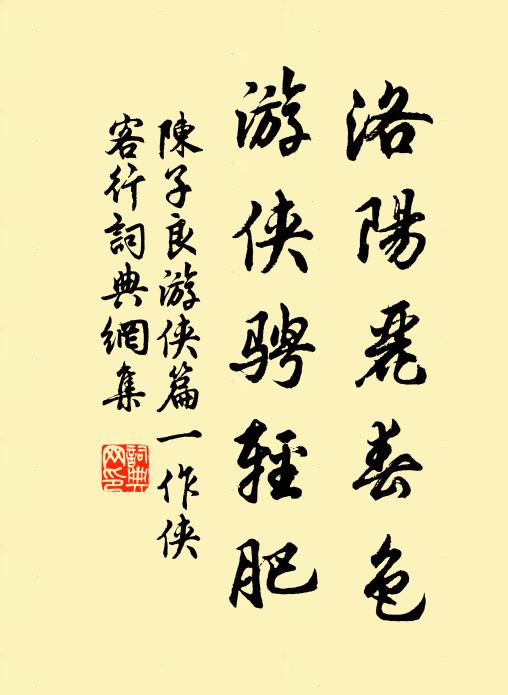 洛陽麗春色
游俠騁輕肥
陳子良游俠篇一作俠
客行詞典網集
詞典网印